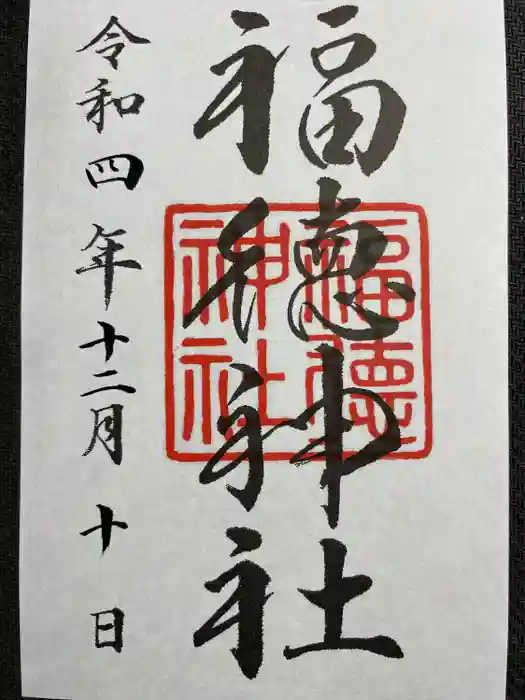 福徳神社
福徳神社
令和四年十二月十日